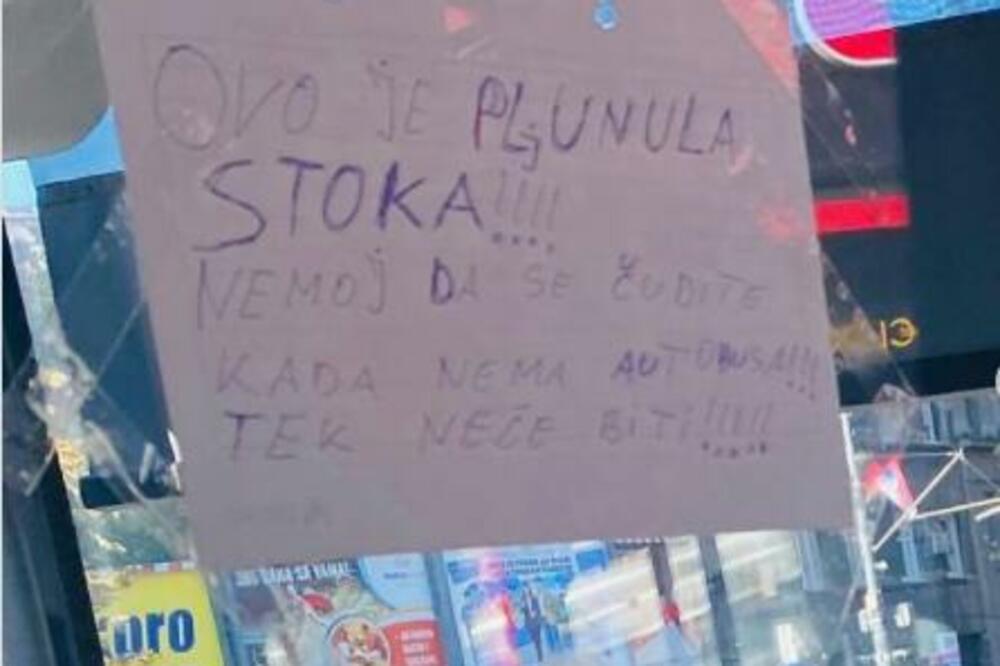 OVO JE PLjUNULA
STOKA!!!!
NEMOJ DA SE ČUDITE
KADA NEMA AUTOBUSA!!!
TEK NEĆE BITI!!!!!
oro